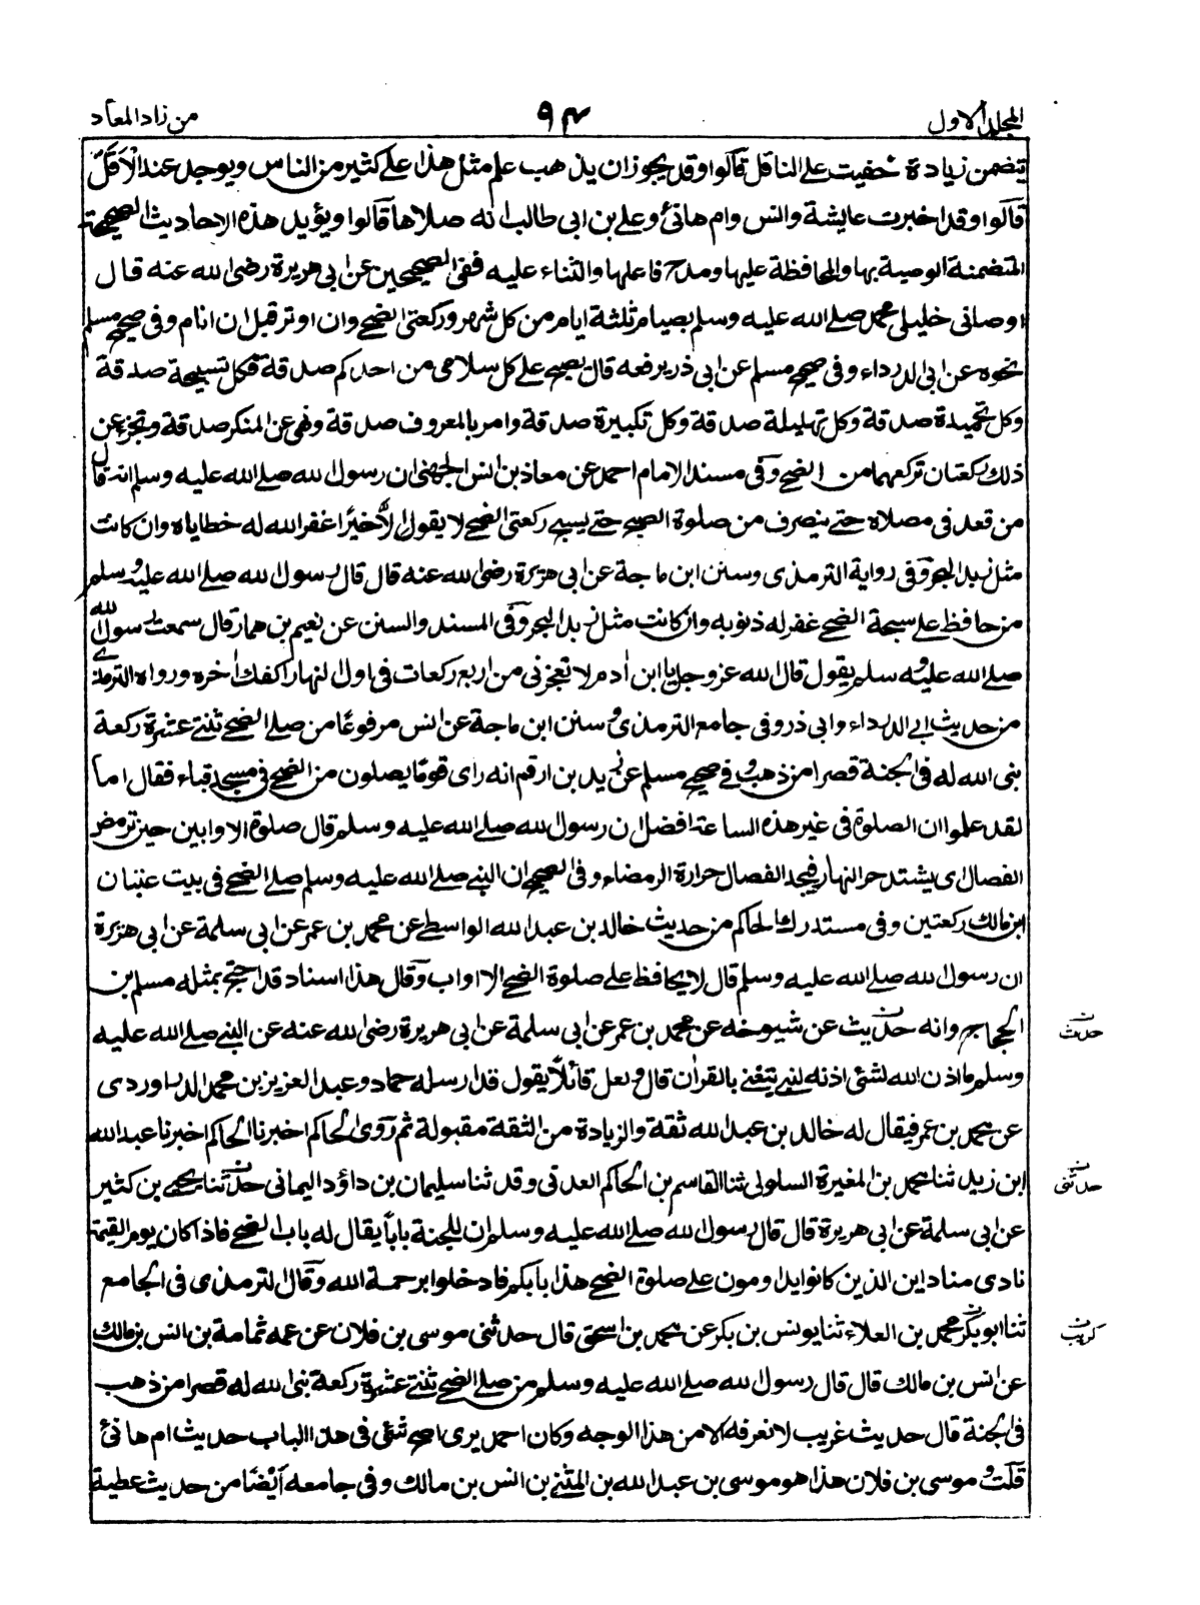 المجلد الاول
٩٤
من زاد المعاد
يتضمن زيادة خفيت على الناقل قالوا وقد يجوز ان يذهب علم مثل هذا على كثير من الناس ويوجد عند الاقل
قالوا وقد اخبرت عايشة وانس وام هانئ وعلى بن ابى طالب انه صلاها قالوا ويؤيد هذه الاحاديث الصحيحة
المتضمنة الوصية بها والمحافظة عليها ومدح فاعلها والثناء عليه ففى الصحيحين عن ابى هريرة رضى الله عنه قال
اوصانى خليلى محمد صلى الله عليه وسلم بصيام ثلثة ايام من كل شهر وركعتى الضحى وان اوتر قبل ان انام وفى صحيح مسلم
نحوه عن ابى الدرداء وفى صحيح مسلم عن ابى ذر يرفعه قال يصبح على كل سلامى من احدكم صدقة فكل تسبيحة صدقة
وكل تحميدة صدقة وكل تهليلة صدقة وكل تكبيرة صدقة وامر بالمعروف صدقة ونهى عن المنكر صدقة وتجزئ عن
ذلك ركعتان تركعهما من الضحى وفى مسند الامام احمد عن معاذ بن انس الجهنى ان رسول الله صلى الله عليه وسلم انه قال
من قعد فى مصلاه حتى ينصرف من صلوة الصبح حتى يسبح ركعتى الضحى لا يقول الا خيرا غفر الله له خطاياه وان كانت
مثل زبد البحر وفى رواية الترمذى وسنن ابن ماجة عن ابى هريرة رضى الله عنه قال قال رسول الله صلى الله عليه وسلم
من حافظ على سبحة الضحى غفر له ذنوبه وان كانت مثل زبد البحر وفى المسند والسنن عن نعيم بن همار قال سمعت رسول الله
صلى الله عليه وسلم يقول قال الله عز وجل يا ابن اٰدم لا تعجزنى من اربع ركعات فى اول النهار اكفك اٰخره ورواه الترمذى
من حديث ابى الدرداء وابى ذر وفى جامع الترمذى وسنن ابن ماجة عن انس مرفوعًا من صلى الضحى ثنتى عشرة ركعة
بنى الله له فى الجنة قصرا من ذهب وفى صحيح مسلم عن زيد بن ارقم انه رأى قومًا يصلون من الضحى فى مسجد قباء فقال اما
لقد علموا ان الصلوة فى غير هذه الساعة افضل ان رسول الله صلى الله عليه وسلم قال صلوة الاوابين حين ترمض
الفصال اى يشتد حر النهار فيجد الفصال حرارة الرمضاء وفى الصحيح ان النبى صلى الله عليه وسلم صلى الضحى فى بيت عتبان
ابن مالك ركعتين وفى مستدرك الحاكم من حديث خالد بن عبد الله الواسطى عن محمد بن عمر عن ابى سلمة عن ابى هريرة
ان رسول الله صلى الله عليه وسلم قال لا يحافظ على صلوة الضحى الا اواب وقال هذا اسناد قد احتج بمثله مسلم بن
الحجاج وانه حديث عن شيوخه عن محمد بن عمر عن ابى سلمة عن ابى هريرة رضى الله عنه عن النبى صلى الله عليه
ن حدث
وسلم ما اذن الله لشئ اذنه لنبى يتغنى بالقراٰن قال ولعل قائلًا يقول قد ارسله حماد وعبد العزيز بن محمد الدراوردى
عن محمد بن عمر فيقال له خالد بن عبد الله ثقة والزيادة من الثقة مقبولة ثم روى الحاكم اخبرنا الحاكم اخبرنا عبد الله
ابن زيد ثنا محمد بن المغيرة السلولى ثنا القاسم بن الحاكم العدنى وقد ثنا سليمان بن داؤد اليمانى حدثنا يحيى بن كثير
ن حدثنى
عن ابى سلمة عن ابى هريرة قال قال رسول الله صلى الله عليه وسلم ان للجنة بابًا يقال له باب الضحى فاذا كان يوم القيمة
نادى مناد اين الذين كانوا يداومون على صلوة الضحى هذا بابكم فادخلوا برحمة الله وقال الترمذى فى الجامع
ثنا ابو بكر محمد بن العلاء ثنا يونس بن بكر عن محمد بن اسحق قال حدثنى موسى بن فلان عن عمه ثمامة بن انس بن مالك
ن كريب
عن انس بن مالك قال قال رسول الله صلى الله عليه وسلم من صلى الضحى ثنتى عشرة ركعة بنى الله له قصرا من ذهب
فى الجنة قال حديث غريب لا نعرفه الا من هذا الوجه وكان احمد يرى اصح شئ فى هذا الباب حديث ام هانئ
قلت وموسى بن فلان هذا هو موسى بن عبد الله بن المثنى بن انس بن مالك وفى جامعه ايضًا من حديث عطية